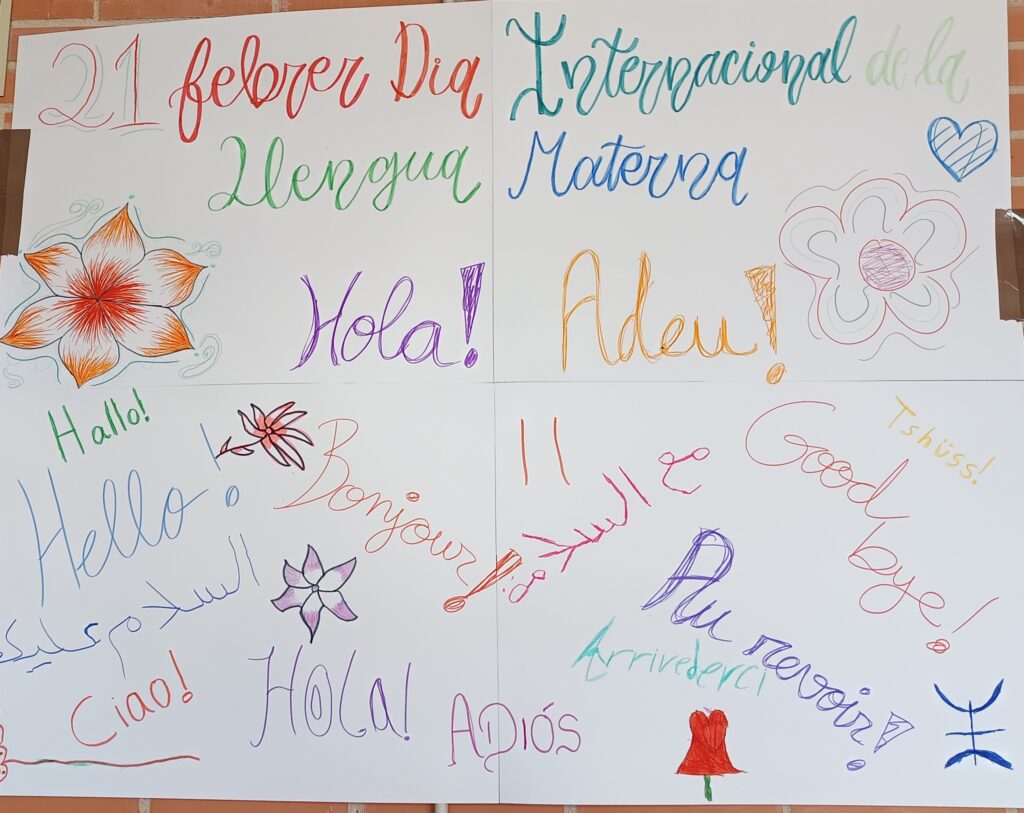 21 febrer Dia Internacional de la
Llengua Materna
Hola! Adeu!
Hallo!
Hello!
Bonjour!
السلام عليكم
Ciao!
HOLa!
ADIÓS
مع السلامة
Good
bye!
Tshüss!
Au revoir!
Arrivederci
ⵣ